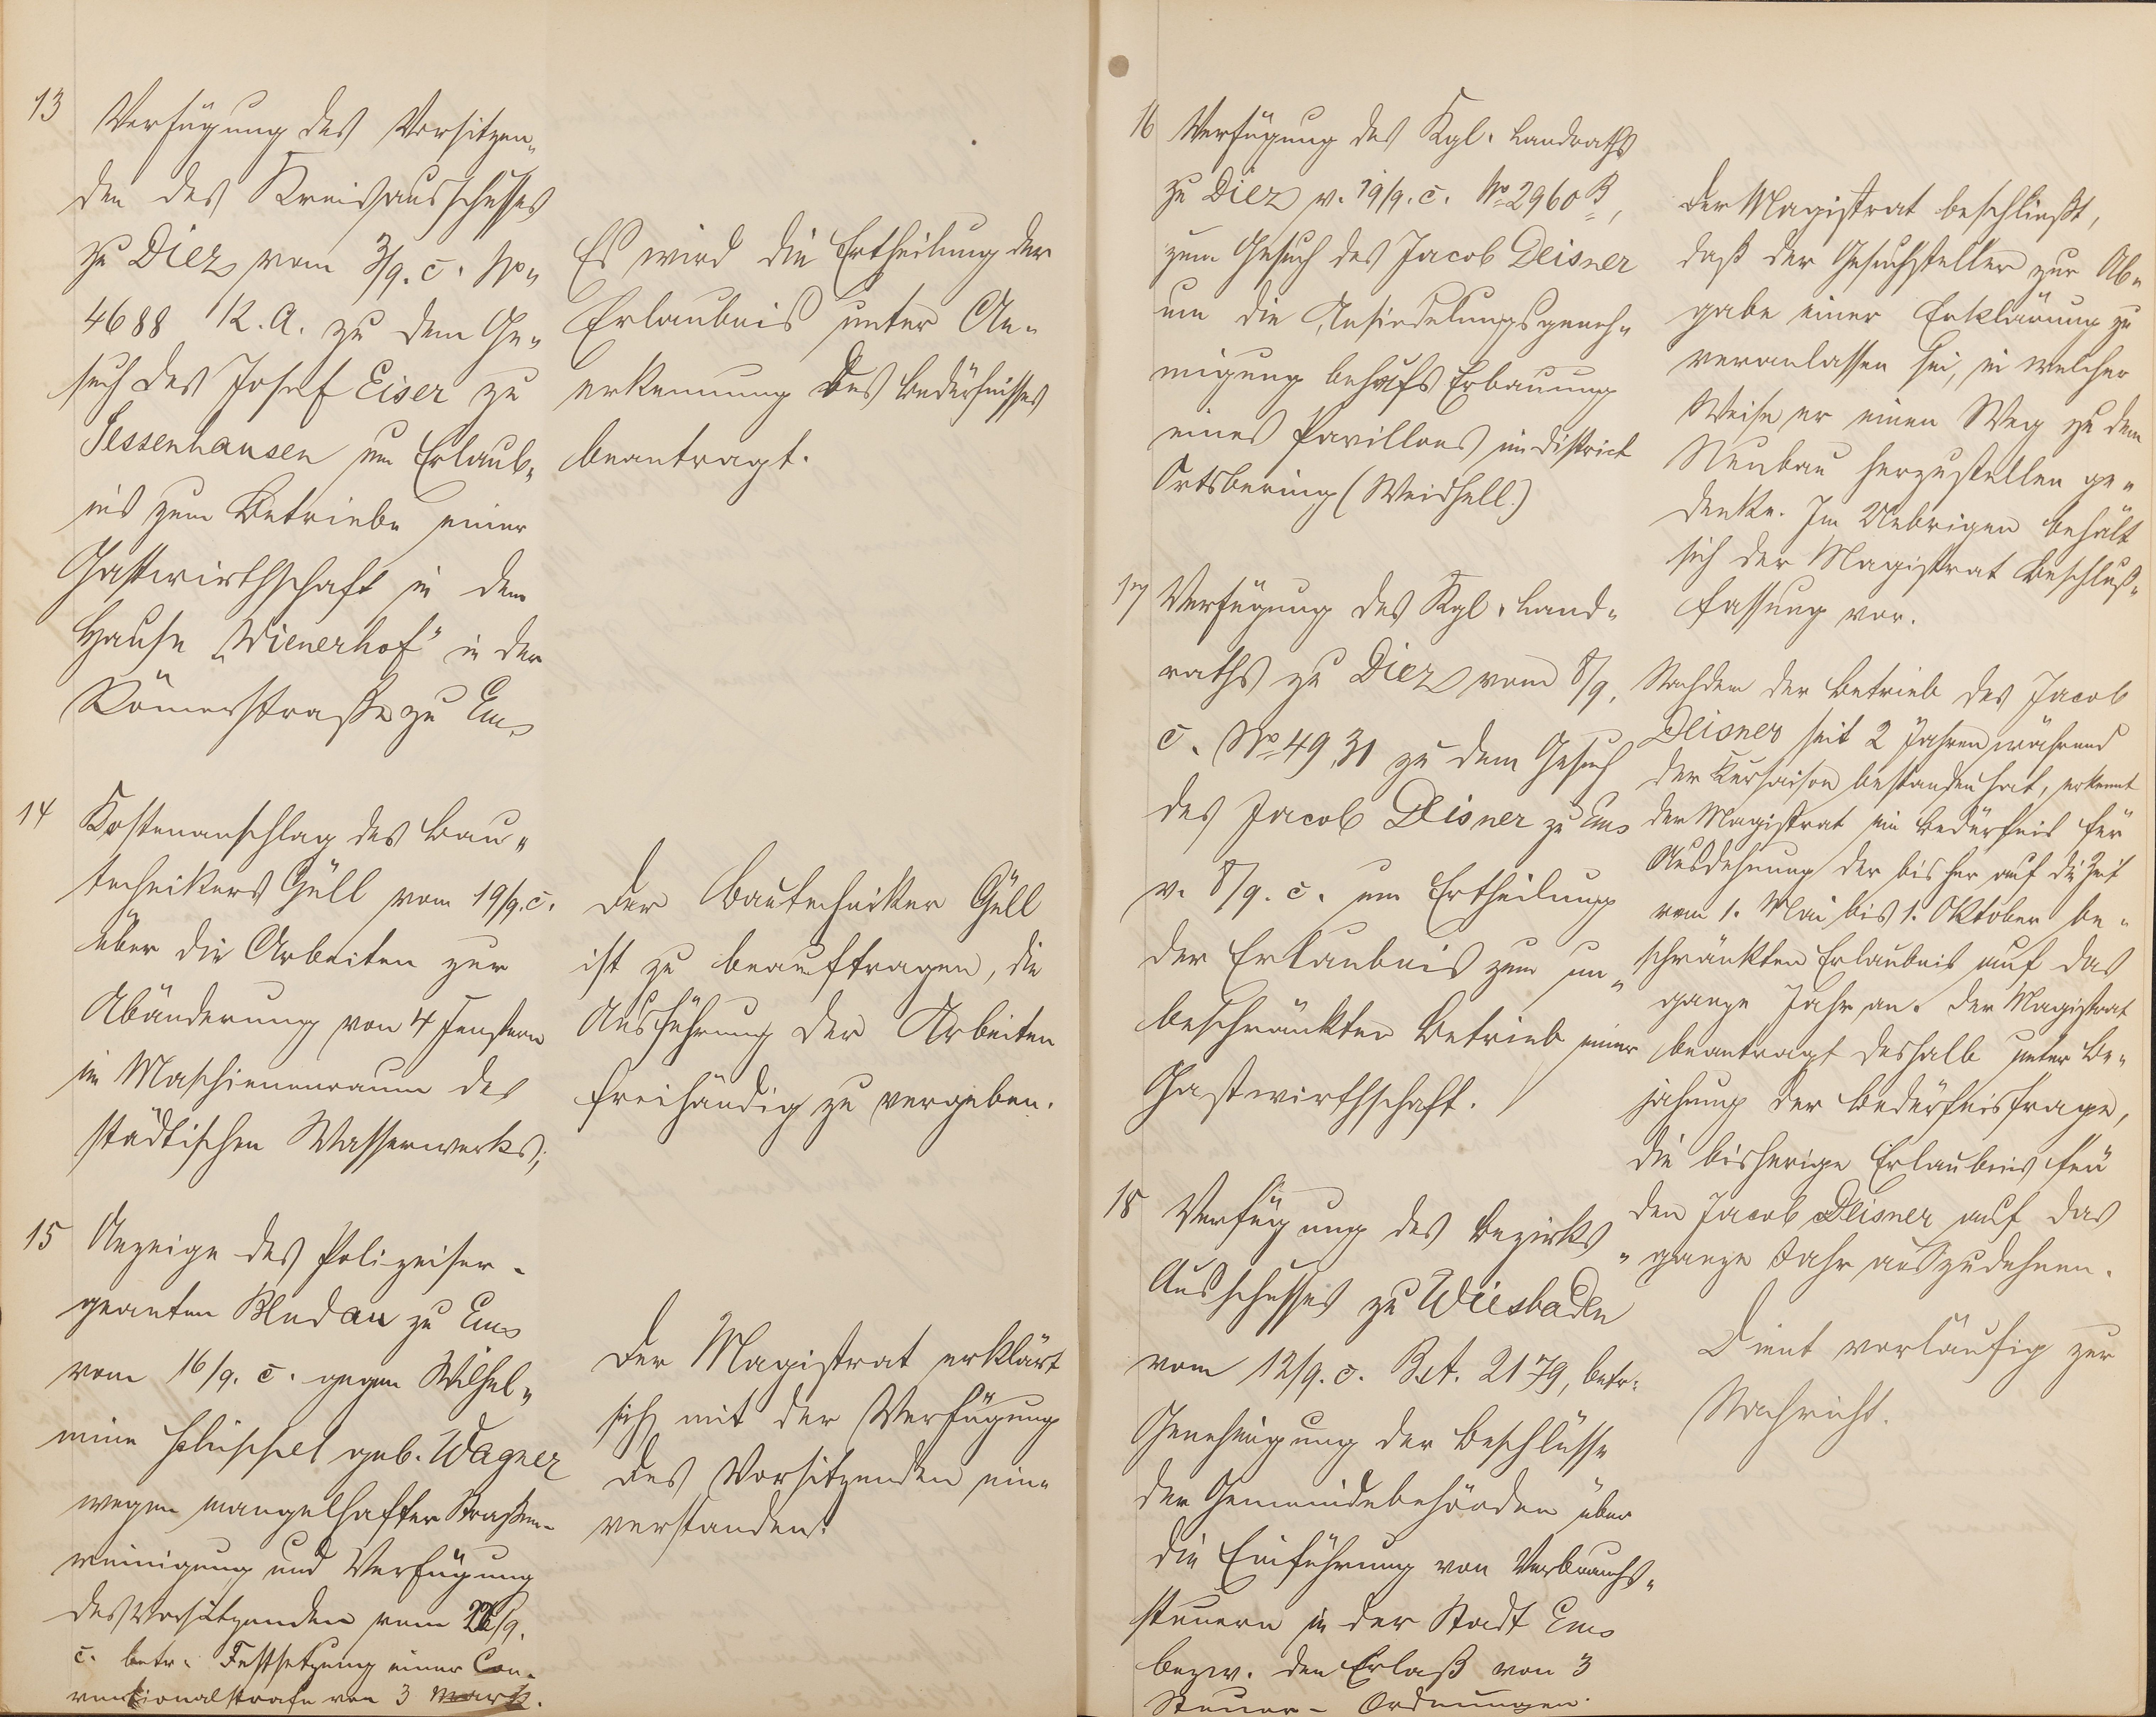 13
Verfügung des Vorsitzen„
den des Kreisausschusses
zu Diez vom 3/9. c. No„
4688 K. A. zu dem Ge„
such des Josef Eiser zu
Sessenhausen um Erlaub„
nis zum Betriebe einer
Gastwirthschaft in dem
Hause „Wienerhof“ in der
Römerstraße zu Ems
Es wird die Ertheilung der
Erlaubnis unter An„
erkennung des Bedürfnisses
beantragt.
14
Kostenanschlag des Bau„
technikers Güll vom 19/9. c.
über die Arbeiten zur
Abänderung von 4 Fenstern
im Maschienenraum des
städtischen Wasserwerks;
Der Bautechniker Güll
ist zu beauftragen, die
Ausführung der Arbeiten
freihändig zu vergeben.
15
Anzeige des Polizeiser-
geanten Mudau zu Ems
vom 16/9. c. gegen Wilhel„
mine geb. Wagner
wegen mangelhafter Straßen-
reinigung und Verfügung
des Vorsitzenden vom /9.
c. betr. Festsetzung einer Con-
ventionalstrafe von 3 Mark.
Der Magistrat erklärt
sich mit der Verfügung
des Vorsitzenden ein„
verstanden.
16
Verfügung des Kgl. Landraths
zu Diez v. 19/9. c. No 2960 B,
zum Gesuch des Jacob Deisner
um die Ansiedelungsgeneh„
migung behufs Erbauung
eines Pavillons im District
Ortsbering (Weidhell.)
Der Magistrat beschließt,
daß der Gesuchsteller zur Ab„
gabe einer Erklärung zu
veranlassen sei, in welcher
Weise er einen Weg zu dem
Neubau herzustellen ge„
denke. Im Uebrigen behält
sich der Magistrat Beschluß„
fassung vor.
17
Verfügung des Kgl. Land„
raths zu Diez vom 8/9.
c. No 4931 zu dem Gesuch
des Jacob Deisner zu Ems
v. 8/9. c. um Ertheilung
der Erlaubnis zum un„
beschränkten Betrieb einer
Gastwirthschaft.
Nachdem der Betrieb des Jacob
Deisner seit 2 Jahren während
der Kursaison bestanden hat, erkennt
der Magistrat ein Bedürfnis für
Ausdehnung der bisher auf die Zeit
vom 1. Mai bis 1. Oktober be„
schränkten Erlaubnis auf das
ganze Jahr an. Der Magistrat
beantragt deshalb unter Be„
jahung der Bedürfnisfrage,
die bisherige Erlaubnis für
den Jacob Deisner auf das
ganze Jahr auszudehnen.
18
Verfügung des Bezirks„
Ausschusses zu Wiesbaden
vom 12/9. c. B. A. 2179, betr.
Genehmigung der Beschlüsse
der Gemeindebehörden über
die Einführung von Verbrauchs„
steuern in der Stadt Ems
bezw. den Erlaß von 3
Steuer- Ordnungen.
Dient vorläufig zur
Nachricht.